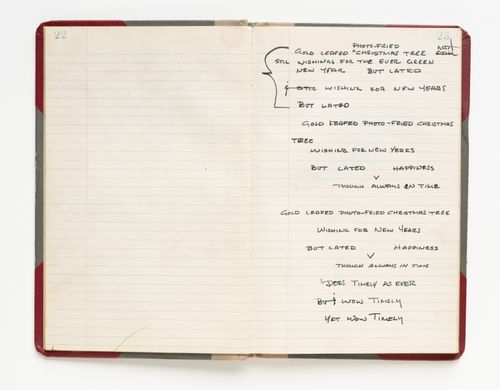 22
23
PHOTO-FRIED
GOLD LEAFED ^ CHRISTMAS TREE
STIL WISHINGS FOR THE EVER GREEN
NEW YEAR BUT LATED
& STIL WISHING FOR NEW YEARS
BUT LATED
GOLD LEAFED PHOTO-FRIED CHRISTMAS
TREE
WISHING FOR NEW YEARS
BUT LATED HAPPINESS
THOUGH ALWAYS ON TIME
GOLD LEAFED PHOTO-FRIED CHRISTMAS TREE
WISHING FOR NEW YEARS
BUT LATED HAPPINESS
THOUGH ALWAYS IN TIME
TIMELY AS EVER
BUT WOW TIMELY
YET WOW TIMELY